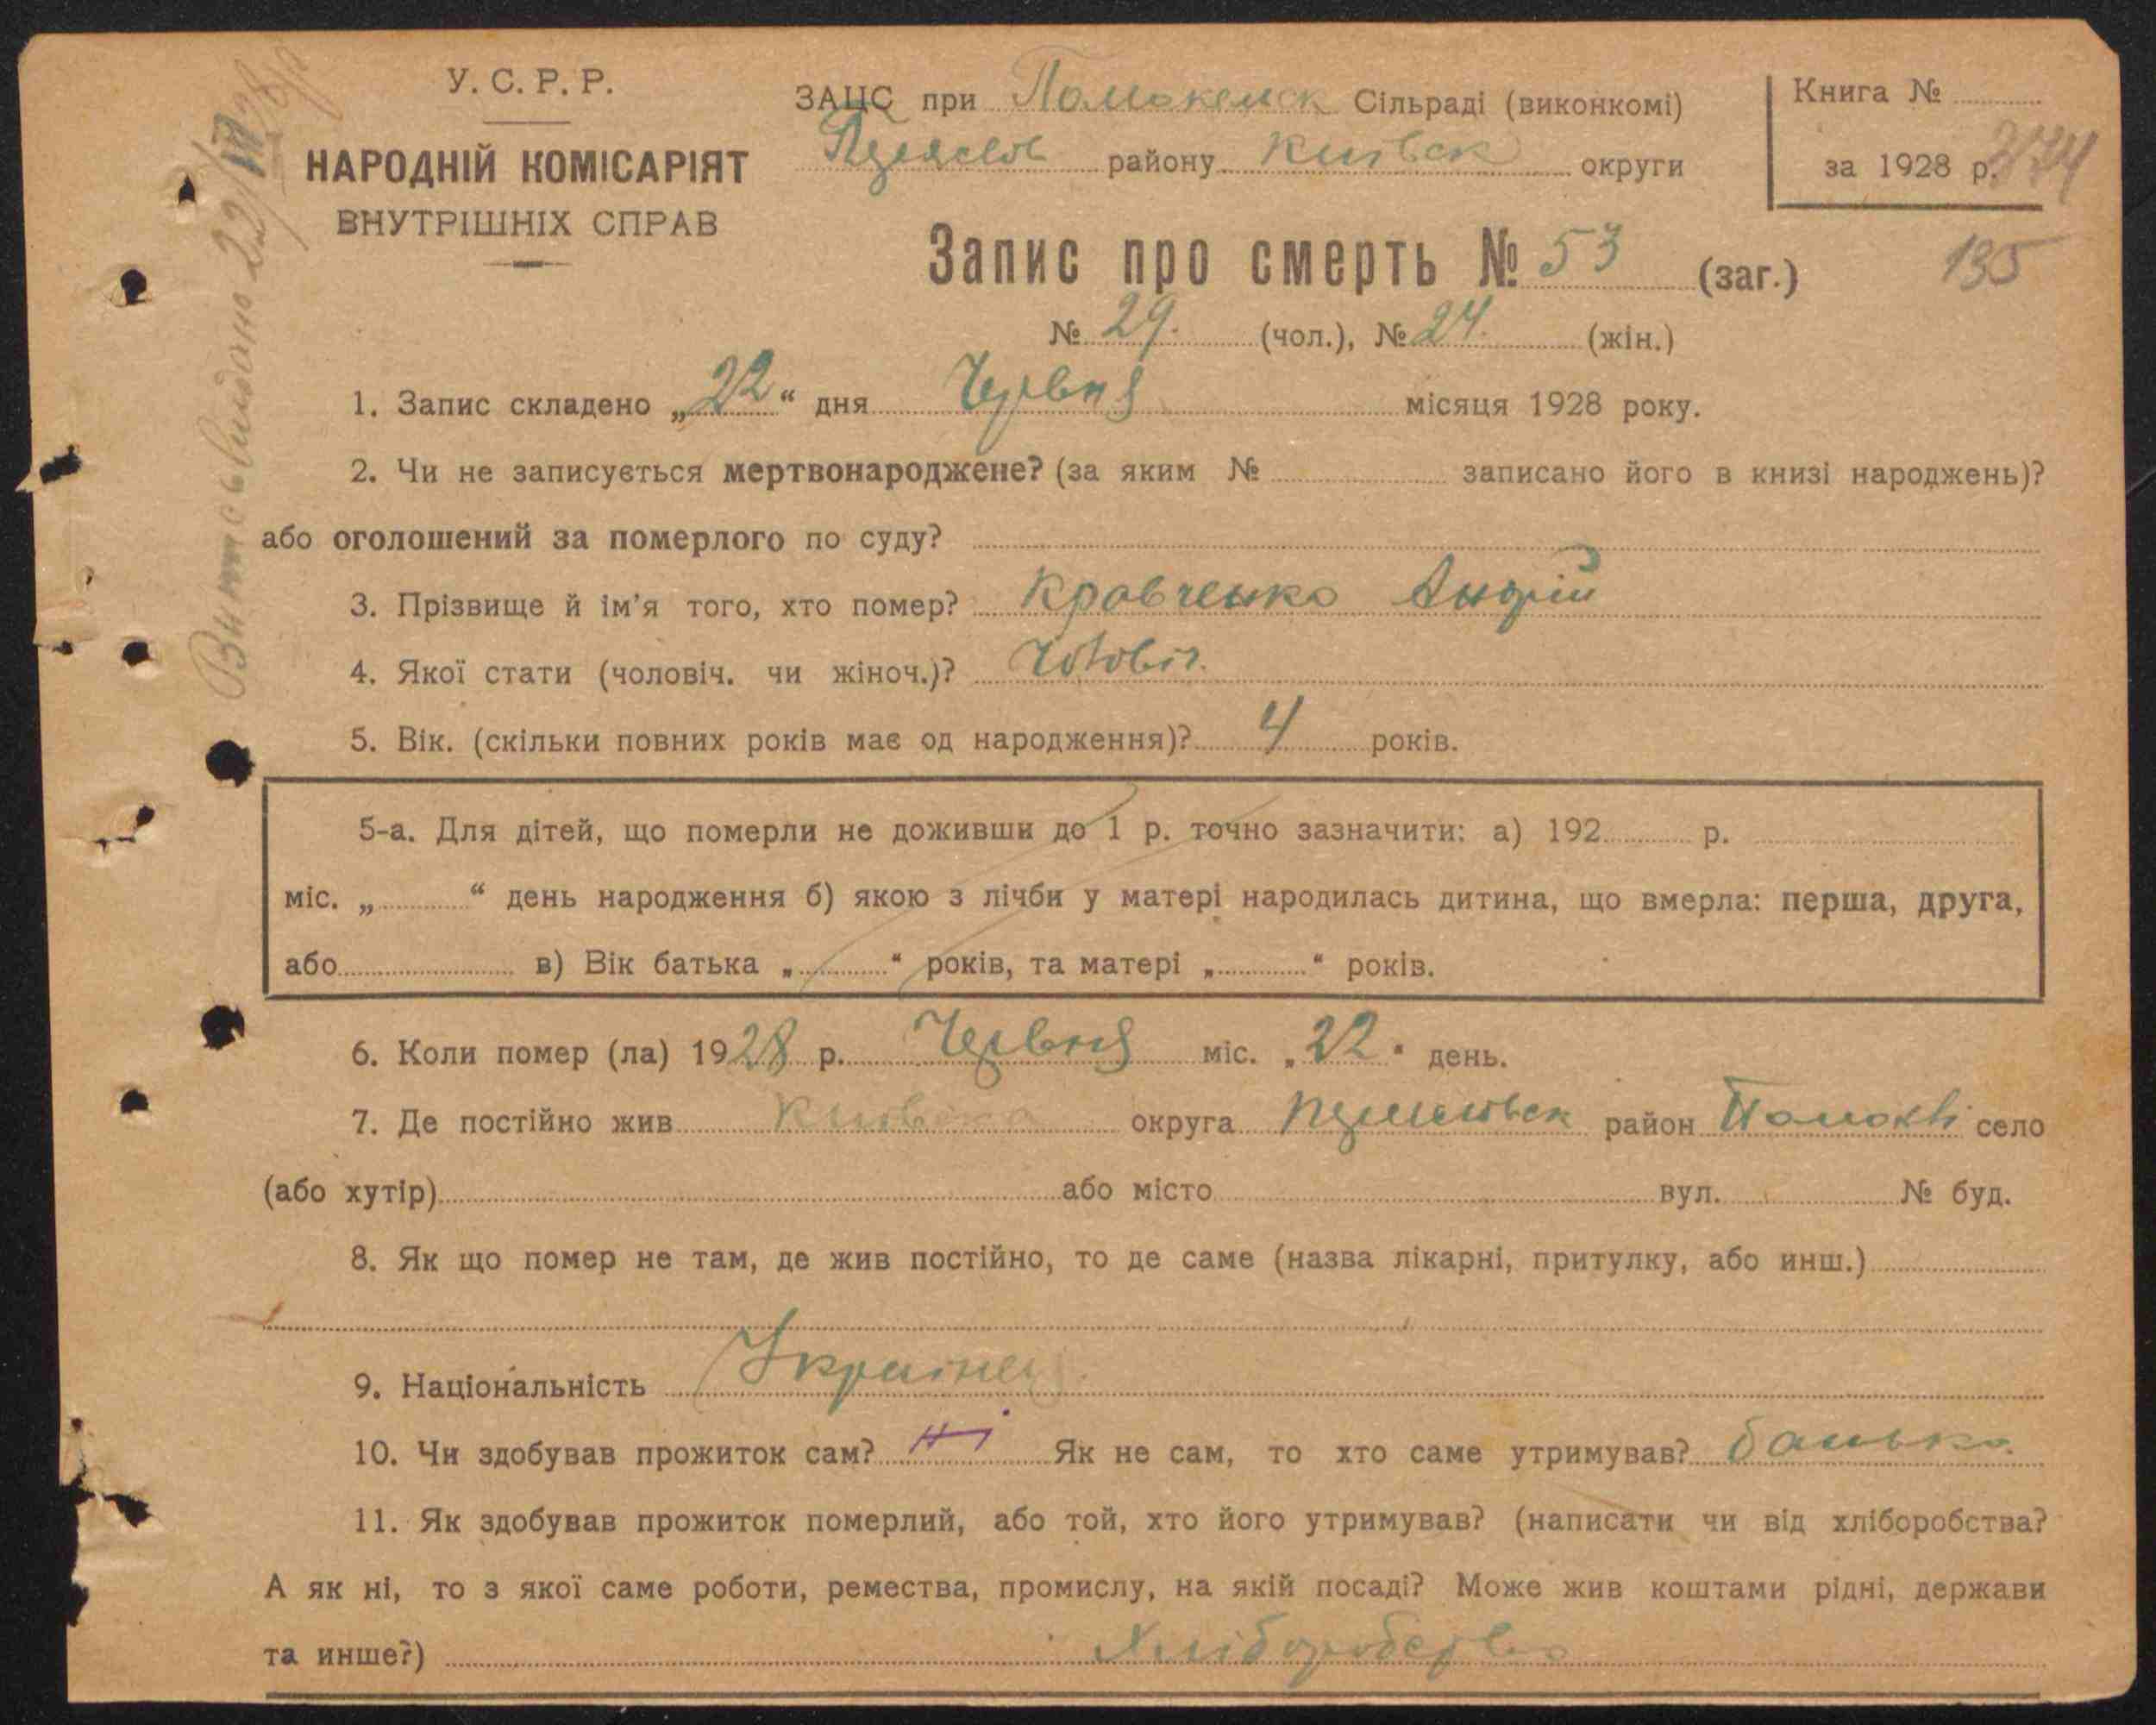 У. С. Р. Р.
НАРОДНІЙ КОМІСАРІЯТ
ВНУТРІШНІХ СПРАВ
ЗАЦС при Помокемск Сільраді (виконкомі)
району Київськ округи
Книга №
за 1928 р. 274
135
Запис про смерть № 53 (заг.)
№ 29. (чол.), № 24. (жін.)
1. Запис складено „22“ дня Червня місяця 1928 року.
2. Чи не записується мертвонароджене? (за яким № записано його в книзі народжень)?
або оголошений за померлого по суду?
3. Прізвище й ім'я того, хто помер? Кравченко Андрій
4. Якої стати (чоловіч. чи жіноч.)? Чоловіч.
5. Вік. (скільки повних років має од народження)? 4 років.
5-а. Для дітей, що померли не доживши до 1 р. точно зазначити: а) 192 р.
міс. „ “ день народження б) якою з лічби у матері народилась дитина, що вмерла: перша, друга,
або в) Вік батька „ “ років, та матері „ “ років.
6. Коли помер (ла) 1928 р. Червня міс. „22“ день.
7. Де постійно жив Київська округа район село
(або хутір) або місто вул. № буд.
8. Як що помер не там, де жив постійно, то де саме (назва лікарні, притулку, або инш.)
9. Національність Українец
10. Чи здобував прожиток сам? ні Як не сам, то хто саме утримував? батько
11. Як здобував прожиток померлий, або той, хто його утримував? (написати чи від хліборобства?
А як ні, то з якої саме роботи, ремества, промислу, на якій посаді? Може жив коштами рідні, держави
та инше?) Хліборобство
Витяг видано 22/VI 28р